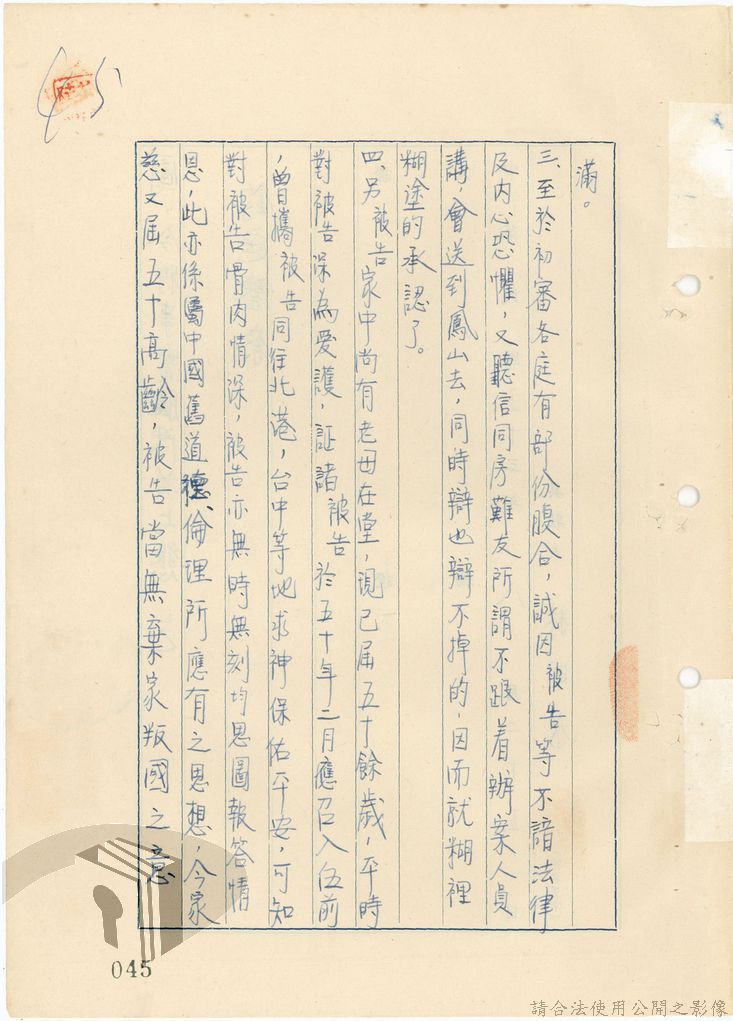 45
滿。
三、至於初審各庭有部份腹合，誠因被告等不諳法律
及內心恐懼，又聽信同房難友所謂不跟着辦案人員
講，會送到鳳山去，同時辯也辯不掉的，因而就糊裡
糊塗的承認了。
四、另被告家中尚有老母在堂，現已屆五十餘歲，平時
對被告深為愛護，証諸被告於五十年二月應召入伍前
，曾攜被告同往北港，台中等地求神保佑平安，可知
對被告骨肉情深，被告亦無時無刻均思圖報答情
恩，此亦係屬中國舊道德、倫理所應有之思想，今家
慈又屆五十高齡，被告當無棄家叛國之意
045
請合法使用公開之影像